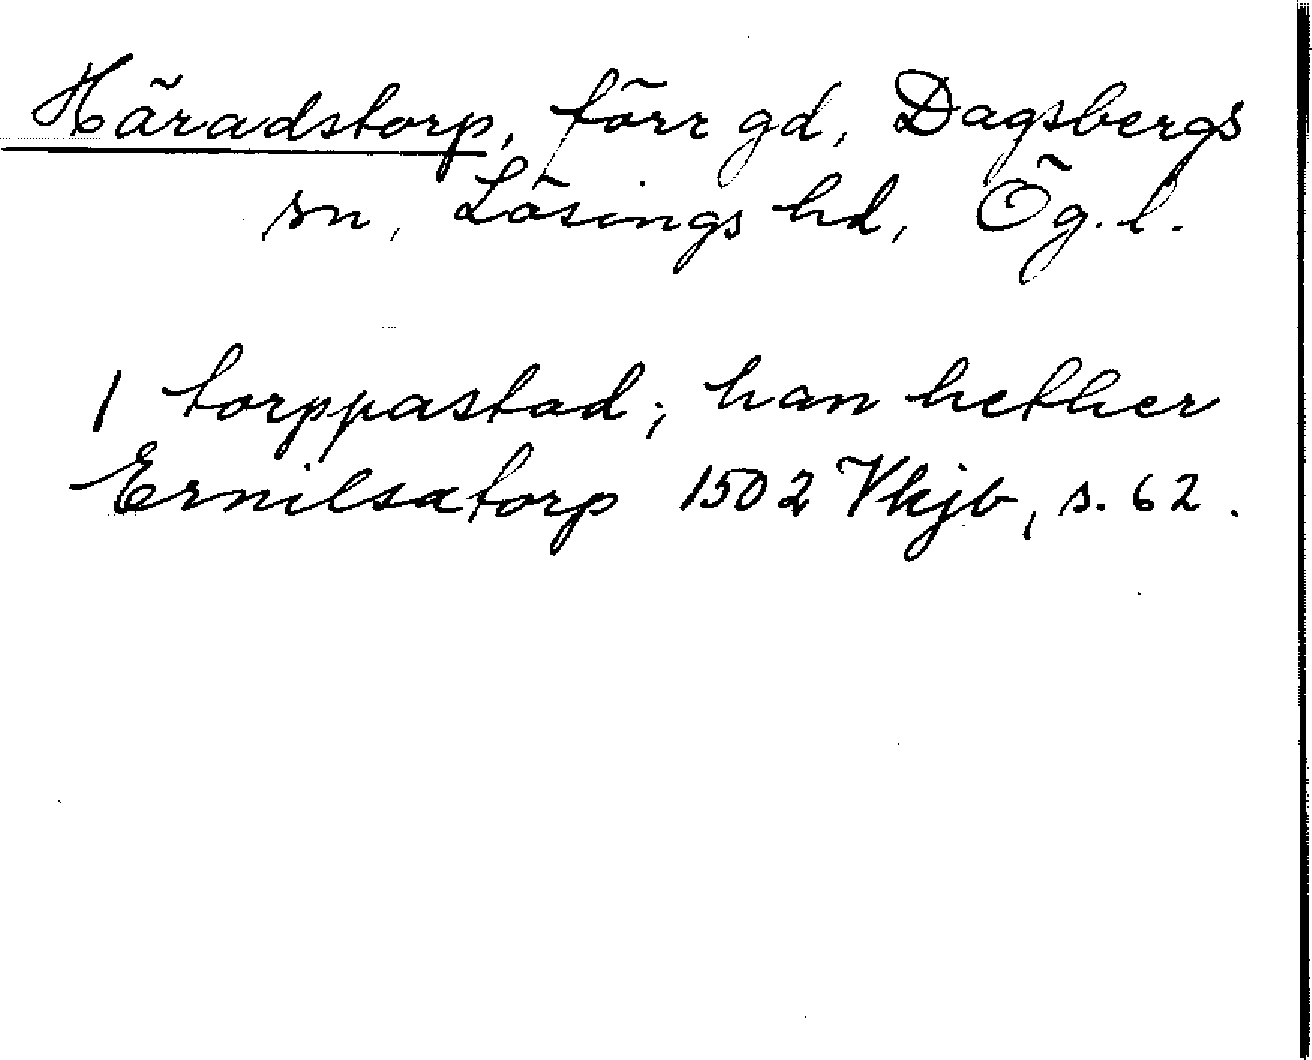 Häradstorp, förr gd, Dagsbergs
sn, Lösings hd, Ög. l.
1 torppastad; han hether
Ernilsatorp 1502 Vkjb, s. 62.